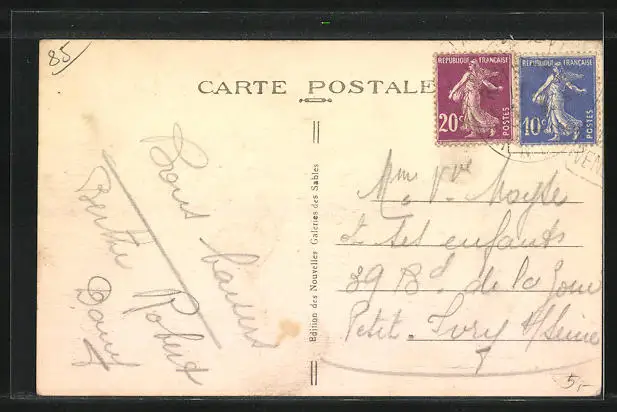 85
CARTE POSTALE
REPUBLIQUE FRANÇAISE
20c
POSTES
REPUBLIQUE FRANÇAISE
10c
POSTES
VEN
Edition des Nouvelles Galeries des Sables
Bons baisers
Berthe Robert
Mme Vve Moyse
et ses enfants
39 Bd de la Gare
Petit-Ivry s/Seine
5,-